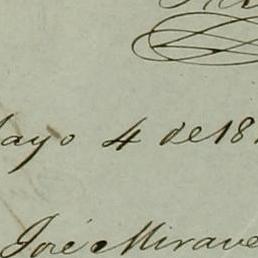 ayo 4 de 18
José Mirave